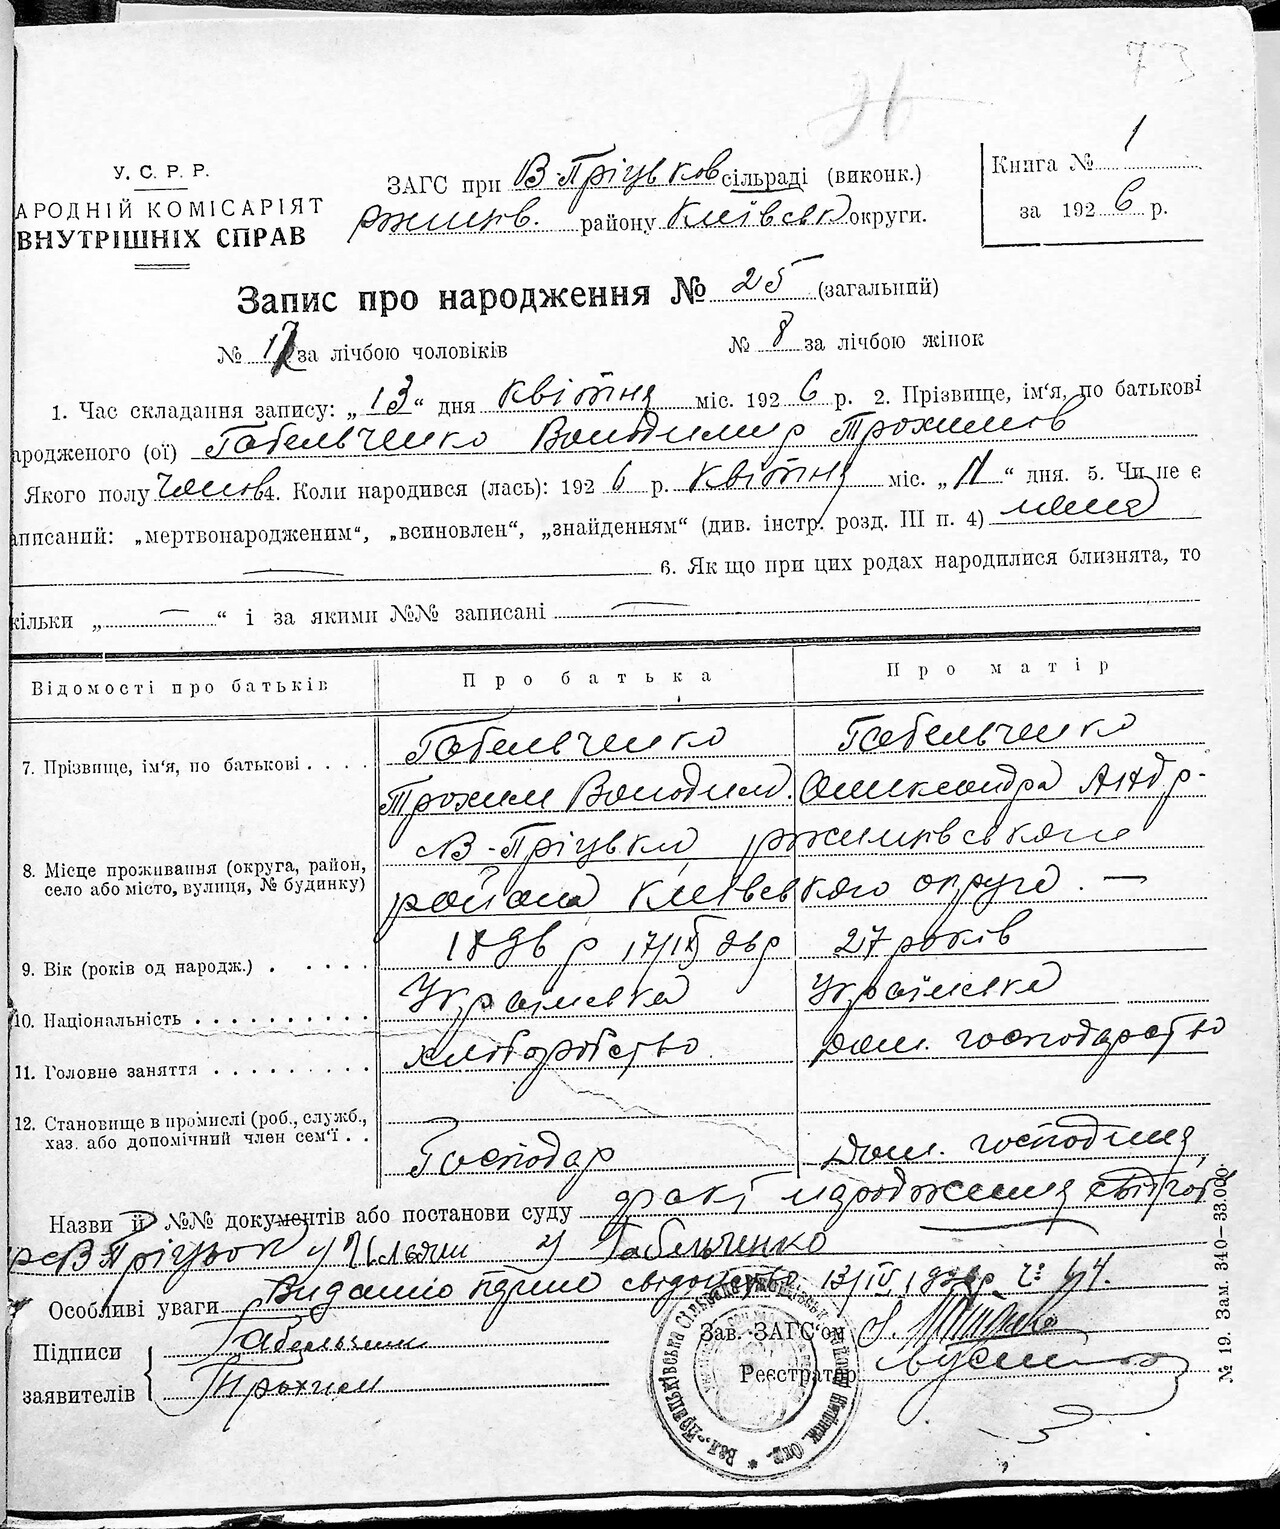 73
26
У. С. Р. Р.
АРОДНІЙ КОМІСАРІЯТ
ВНУТРІШНІХ СПРАВ
ЗАГС при В-Пріцьков сільраді (виконк.)
Ржищів. району Київськ округи.
Книга № 1
за 1926 р.
Запис про народження № 25 (загальний)
№ 17 за лічбою чоловіків
№ 8 за лічбою жінок
1. Час складання запису: „13“ дня Квітня міс. 1926 р. 2. Прізвище, ім‘я, по батькові
ародженого (ої) Габельченко Володимир Трохимов
Якого полу чолов 4. Коли народився (лась): 1926 р. Квітня міс. „11“ дня. 5. Чи не є
аписаний: „мертвонародженим“, „всиновлен“, „знайденням“ (див. інстр. розд. III п. 4) нема
6. Як що при цих родах народилися близнята, то
кільки „ — “ і за якими №№ записані —
Відомості про батьків
Про батька
Про матір
7. Прізвище, ім‘я, по батькові . . . .
Габельченко
Габельченко
Трохим Володим.
Олександра Андр-
8. Місце проживання (округа, район,
село або місто, вулиця, № будинку)
В-Пріцьки Ржищівського
района Київського округа. —
9. Вік (років од народж.) . . . . .
27 років
10. Національність . . . . . . . . . .
Українська
Українська
11. Головне заняття . . . . . . . . .
хліборобство
дом. господарство
12. Становище в промислі (роб., служб.,
хаз. або допомічний член сем‘ї . .
Господар
дом. господиня
Назви й №№ документів або постанови суду факт народження
Габельченко
Особливі уваги Видано
Підписи
заявителів
Габельченко
Трохим
Зав. ЗАГС‘ом
Реєстратор
№ 19. Зам. 340—33.000.